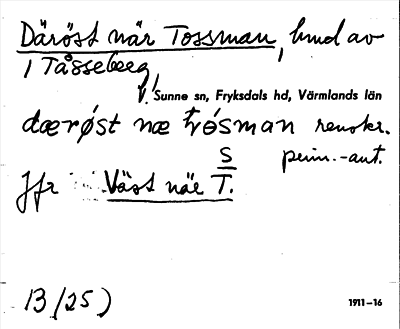 Däröst när Tossman, hmd av
1 Tåsseberg,
V. Sunne sn, Fryksdals hd, Värmlands län
dærøst næ tósman renskr.
S prim.-ant.
Jfr Väst när T.
13 (25)
1911–16